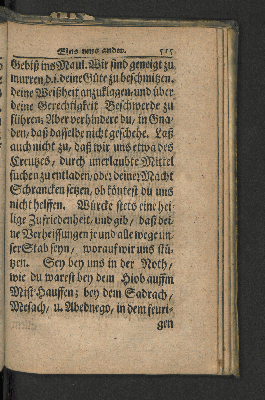 Eins ums ander. 515
Gebiß ins Maul. Wir sind geneigt zu
murren, d.i. deine Güte zu beschmitzen,
deine Weißheit anzuklagen, und über
deine Gerechtigkeit Beschwerde zu
führen; Aber verhindere du, in Gna-
den, daß dasselbe nicht geschehe. Laß
auch nicht zu, daß wir uns etwa des
Creutzes, durch unerlaubte Mittel
suchen zu entladen, oder deiner Macht
Schrancken setzen, ob köntest du uns
nicht helffen. Würcke stets eine hei-
lige Zufriedenheit, und gib, daß dei-
ne Verheissungen je und alle wege un-
ser Stab seyn, worauf wir uns stü-
tzen. Sey bey uns in der Noth,
wie du warest bey dem Hiob auffm
Mist-Hauffen; bey dem Sadrach,
Mesach, u. Abednego, in dem feuri-
gen